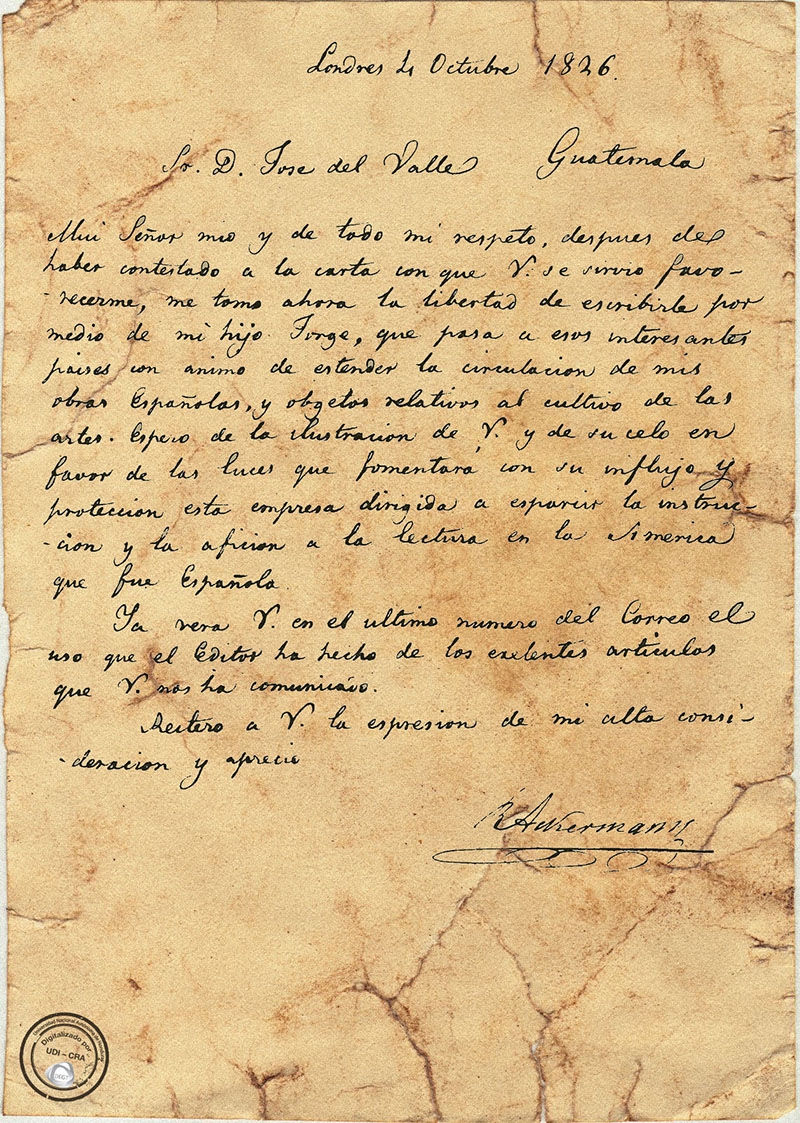 Londres 4 Octubre 1826.
Sr. D. Jose del Valle Guatemala
Mui Señor mio y de todo mi respeto, despues de
haber contestado a la carta con que V. se sirvio favo-
-recerme, me tomo ahora la libertad de escribirle por
medio de mi hijo Jorge, que pasa a esos interesantes
paises con animo de estender la circulacion de mis
obras Españolas, y objetos relativos al cultivo de las
artes. Espero de la ilustracion de V. y de su celo en
favor de las luces que fomentará con su influjo y
proteccion esta empresa dirigida a esparcir la instruc-
-cion y la aficion a la lectura en la America
que fue Española.
Ya vera V. en el ultimo numero del Correo el
uso que el Editor ha hecho de los exelentes articulos
que V. nos ha comunicado.
Reitero a V. la espresion de mi alta consi-
-deracion y aprecio
R Ackermann
Universidad Nacional Autónoma de Honduras
Digitalizado por
UDI-CRA
DEGT